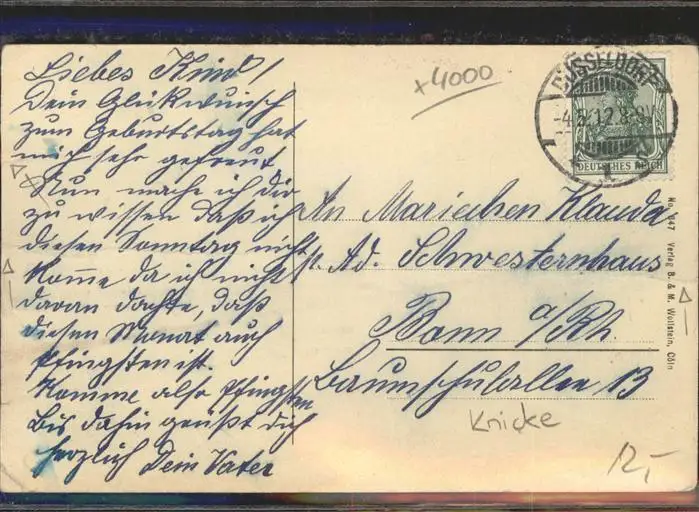 Liebes Kind!
Dein Glükwunsch
zum Geburtstag hat
mich sehr gefreut
Nun mache ich dir
zu wissen daß ich
diesen Sonntag nicht
kom̄e da ich nicht
daran dachte, daß
diesen Monat auch
Pfingsten ist.
Komme also Pfingsten
bis dahin grüßt dich
herzlich Dein Vater
+4000
DÜSSELDORF
-4.5.12.8-9V
1
DEUTSCHES REICH
An Mariechen Klauda
Ad. Schwesternhaus
Bonn a/Rh.
Baumschulallee 13
Knicke
12,-
No. 947 Verlag B. & M. Wollstein, Cöln